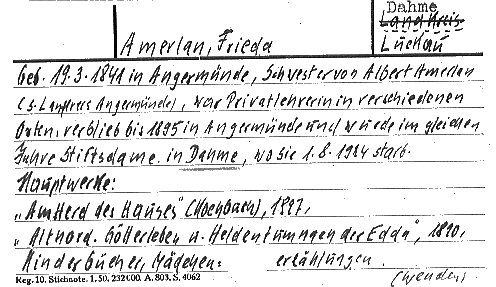 Dahme
Landkreis
Luckau
Amerlan, Frieda
Geb. 19.3.1841 in Angermünde, Schwester von Albert Amerlan
(s. Landkreis Angermünde), war Privatlehrerin in verschiedenen
Orten, verblieb bis 1895 in Angermünde und wurde im gleichen
Jahre Stiftsdame in Dahme, wo sie 1.8.1924 starb.
Hauptwerke:
"Am Herd des Hauses" 1897,
"Altnord. Götterleben u. Heldentum aus der Edda",
Kinderbücher, Mädchen= erzählungen.
Reg. 10. Stichnote. 1.50. 232000. A. 803. S. 4062
(wenden)